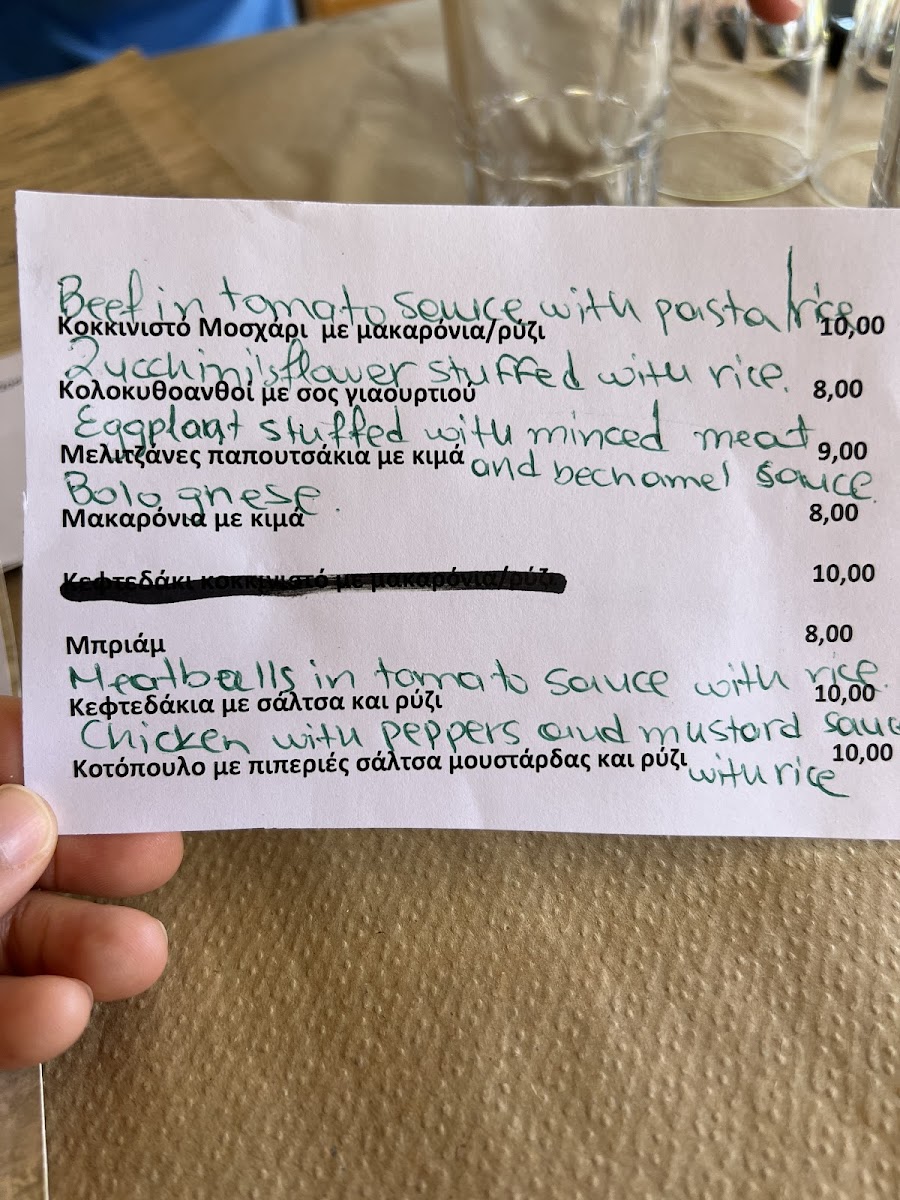 Beef in tomato sauce with pasta/rice
Κοκκινιστό Μοσχάρι με μακαρόνια/ρύζι 10,00
Zucchini's flower stuffed with rice.
Κολοκυθοανθοί με σος γιαουρτιού 8,00
Eggplant stuffed with minced meat
Μελιτζάνες παπουτσάκια με κιμά 9,00
and bechamel sauce
Bolognese.
Μακαρόνια με κιμά 8,00
Κεφτεδάκι κοκκινιστό με μακαρόνια/ρύζι 10,00
Μπριάμ 8,00
Meatballs in tomato sauce with rice.
Κεφτεδάκια με σάλτσα και ρύζι 10,00
Chicken with peppers and mustard sauc
Κοτόπουλο με πιπεριές σάλτσα μουστάρδας και ρύζι 10,00
with rice